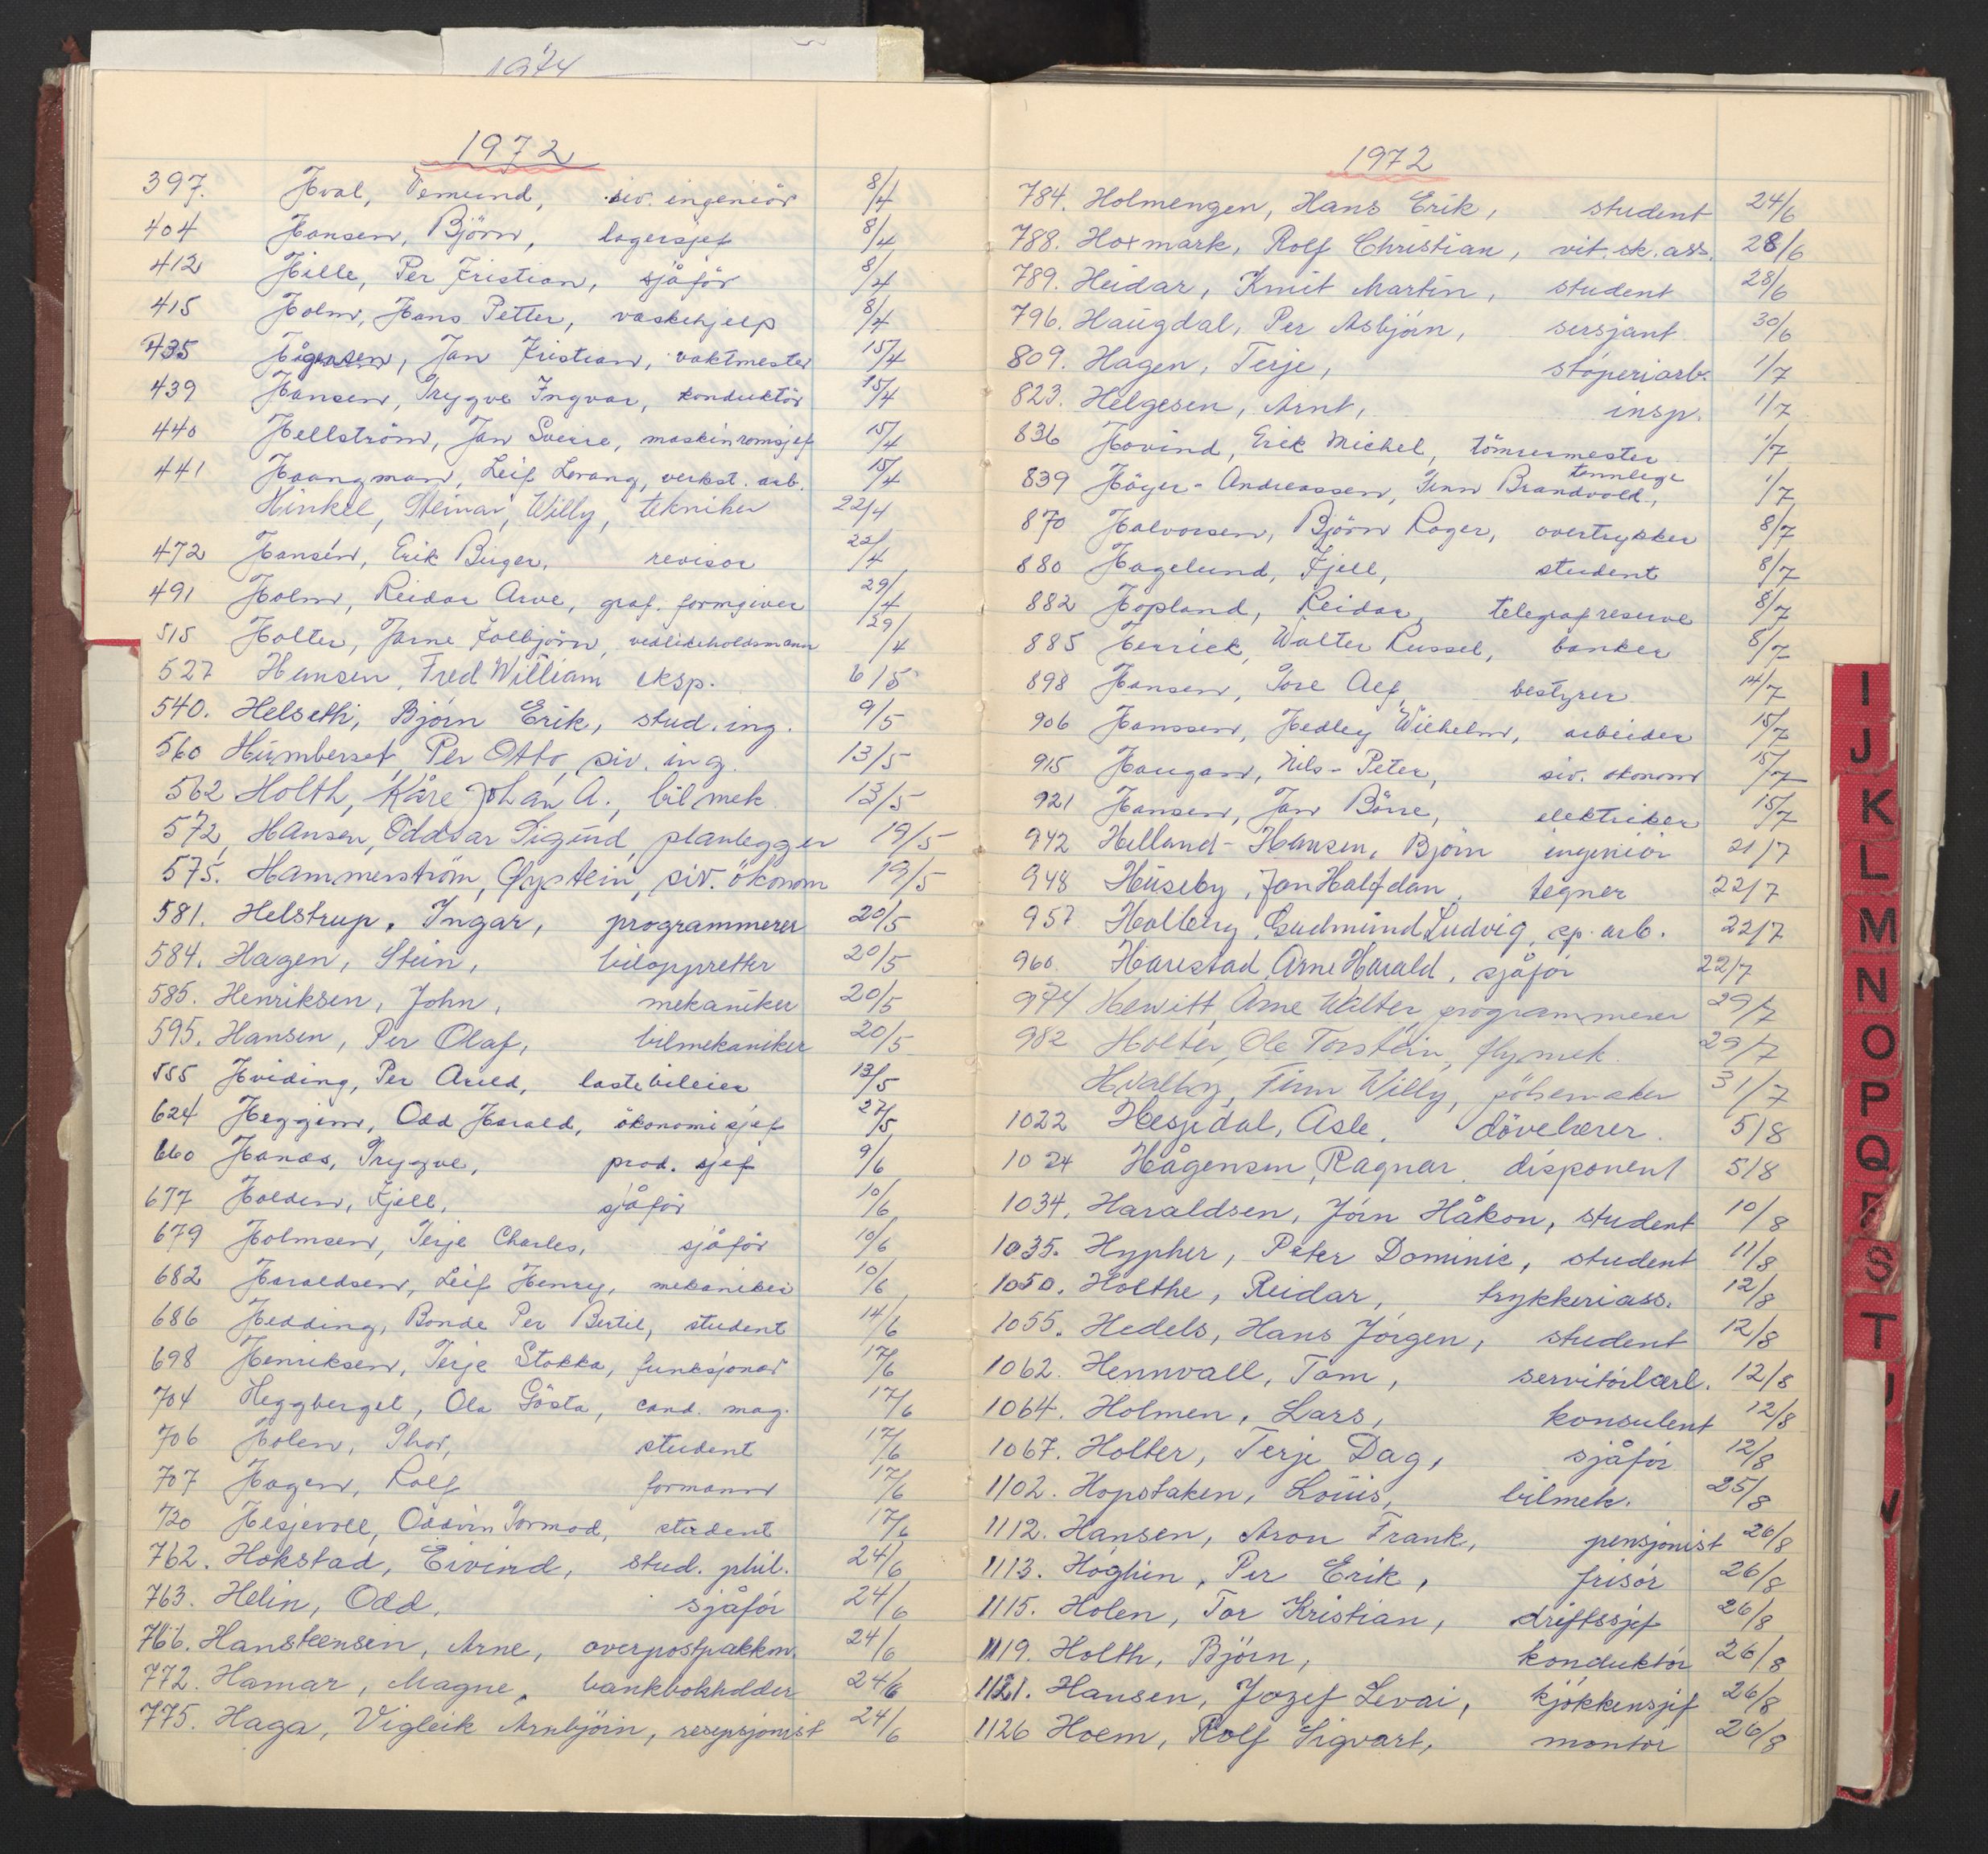 1944
1972
397. Hval, Vemund, siv. ingeniör 8/4
404 Hansen, Björn, lagersjef 8/4
412 Hille, Per Kristian, sjåför 8/4
415 Holm, Hans Petter, vaskehjelp 8/4
435 Hågensen, Jan Kristian, vaktmester 15/4
439 Hansen, Trygve Ingvar, konduktör 15/4
440 Hellström, Jan Sverre, maskinromsjef 15/4
441 Haangman, Leif Levang, verkst. arb. 15/4
Hinkel, Steinar, Willy, tekniker 22/4
472 Hansén, Erik Birger, revisor 22/4
491 Holm, Reidar Arve, graf. formgiver 29/4
515 Holter, Jarne Kolbjörn, vedlikeholdsmann 29/4
527 Hansen, Fred William eksp. 6/5
540. Helseth, Bjórn Erik, stud. ing. 9/5
560 Humberset, Per Otto, siv. ing. 13/5
562 Holth, Kåre Johan A., bilmek. 13/5
572, Hansen, Oddvar Sigund, planlegger 19/5
575. Hammerström, Øystein, siv. ökonom 19/5
581. Helstrup, Ingar, programmerer 20/5
584. Hagen, Stein, biloppretter 20/5
585. Henriksen, John, mekaniker 20/5
595. Hansen, Per Olaf, bilmekaniker 20/5
555 Hviding, Per Arild, lastebileier 13/5
624 Heggem, Odd Harald, ökonomisjef 27/5
660 Hanæs, Trygve, prod. sjef 9/6
677 Holden, Kjell, sjåför 10/6
679 Holmsen, Terje Charles, sjåför 10/6
682 Haraldsen, Leif Henry, mekaniker 10/6
686 Hedding, Bonde Per Bertil, student 14/6
698 Henriksen, Terje Stokka, funksjonær 17/6
704 Heggberget, Ola Gösta, cand. mag. 17/6
706 Holen, Thor, student 17/6
707 Hagen, Rolf formann 17/6
720 Hesjevoll, Oddvin Tormod, student 17/6
762. Hokstad, Eivind, stud. phil. 24/6
763. Helin, Odd, sjåför 24/6
766. Hansteensen, Arne, overpostpakkm. 24/6
772. Hamar, Magne, bankbokholder 24/6
775. Haga, Vigleik Arnbjörn, resepsjonist 24/6
1972
784. Holmengen, Hans Erik, student 24/6
788. Hoxmark, Rolf Christian, vit. sk. ass. 28/6
789. Heidar, Knut Martin, student 28/6
796. Haugdal, Per Asbjörn, sersjant 30/6
809. Hagen, Terje, stöperiarb. 1/7
823. Helgesen, Arnt, insp. 1/7
836 Hovind, Erik Michel, tömrermester 1/7
839 Höyer-Andreassen, Finn Brandvold, tannlege 1/7
870 Halvorsen, Björn Roger, overtrykker 8/7
880 Hagelund, Kjell, student 8/7
882 Hopland, Reidar, telegrafreserve 8/7
885 Herrick, Walter Russel, banker 8/7
898 Hansen, Tore Alf, bestyrer 14/7
906 Hanssen, Hedley Wilhelm, arbeider 15/7
915 Haugan, Nils-Peter, siv. ökonom 15/7
921 Hansen, Jan Börre, elektriker 15/7
942 Helland-Hansen, Björn ingeniör 21/7
948 Huseby, Jan Halfdan, tegner 22/7
957 Holberg, Gudmund Ludvig, sp. arb. 22/7
960. Harestad, Arne Harald, sjåför 22/7
974 Hewitt, Arne Walter, programmerer 29/7
982 Holter, Ole Torstein, flymek. 29/7
Hvalby, Finn Willy, pölsemaker 31/7
1022 Hesjedal, Asle, dövelærer. 5/8
1024 Hågensen, Ragnar, disponent 5/8
1034. Haraldsen, Jörn Håkon, student 10/8
1035. Hypher, Peter Dominic, student 11/8
1050. Holthe, Reidar, trykkeriass. 12/8
1055. Hedels, Hans Jörgen, student 12/8
1062. Hennvall, Tom, servitörlærl. 12/8
1064. Holmen, Lars, konsulent 12/8
1067. Holter, Terje Dag, sjåför 12/8
1102. Hopstaken, Louis, bilmek. 25/8
1112. Hansen, Aron Frank, pensjonist 26/8
1113. Höghin, Per Erik, frisör 26/8
1115. Holen, Tor Kristian, driftssjef 26/8
1119. Holth, Björn, konduktör 26/8
1121. Hansen, Jozef Levai, kjökkensjef 26/8
1126 Hoem, Rolf Sigvart, montör 26/8
I
J
K
L
M
N
O
P
Q
R
S
T